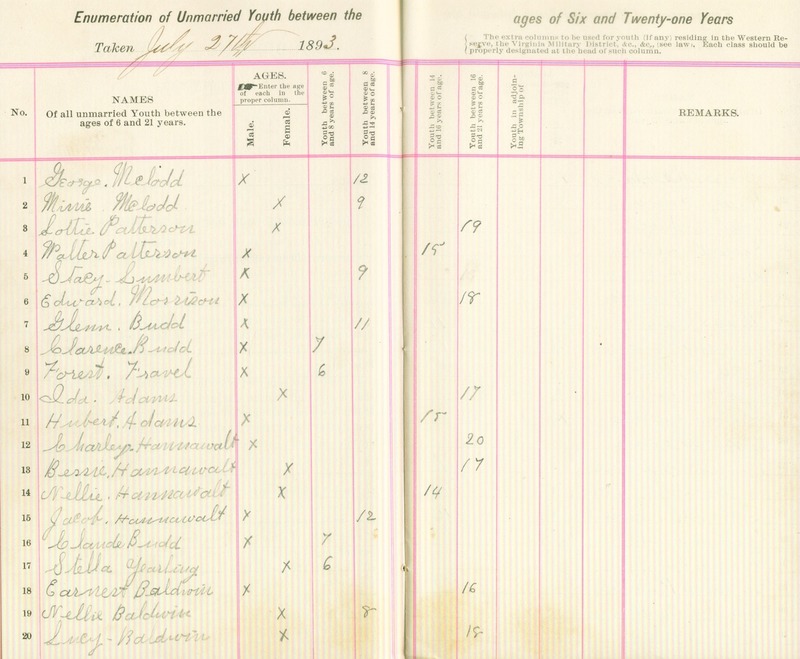 Enumeration of Unmarried Youth between the ages of Six and Twenty-one Years
Taken July 27th 1893.
{ The extra columns to be used for youth (if any) residing in the Western Re-
serve, the Virginia Military District, &c., &c., (see law). Each class should be
properly designated at the head of such column.
No.
NAMES
Of all unmarried Youth between the
ages of 6 and 21 years.
AGES.
Enter the age
of each in the
proper column.
Male.
Female.
Youth between 6
and 8 years of age.
Youth between 8
and 14 years of age.
Youth between 14
and 16 years of age.
Youth between 16
and 21 years of age.
Youth in adjoin-
ing Township of
REMARKS.
1 George. Mclodd X 12
2 Minie Mclodd X 9
3 Lottie Patterson X 19
4 Walter Patterson X 15
5 Stacy-Lumbert X 9
6 Edward. Morrison X 18
7 Glenn. Budd X 11
8 Clarence. Budd X 7
9 Forest. Fravel X 6
10 Ida. Adams X 17
11 Hubert. Adams X 15
12 Charley. Hannawalt X 20
13 Bessie. Hannawalt X 17
14 Nellie. Hannawalt X 14
15 Jacob. Hannawalt X 12
16 Claude Budd X 7
17 Stella Yearling X 6
18 Earnest Baldwin X 16
19 Nellie Baldwin X 8
20 Lucy-Baldwin X 18